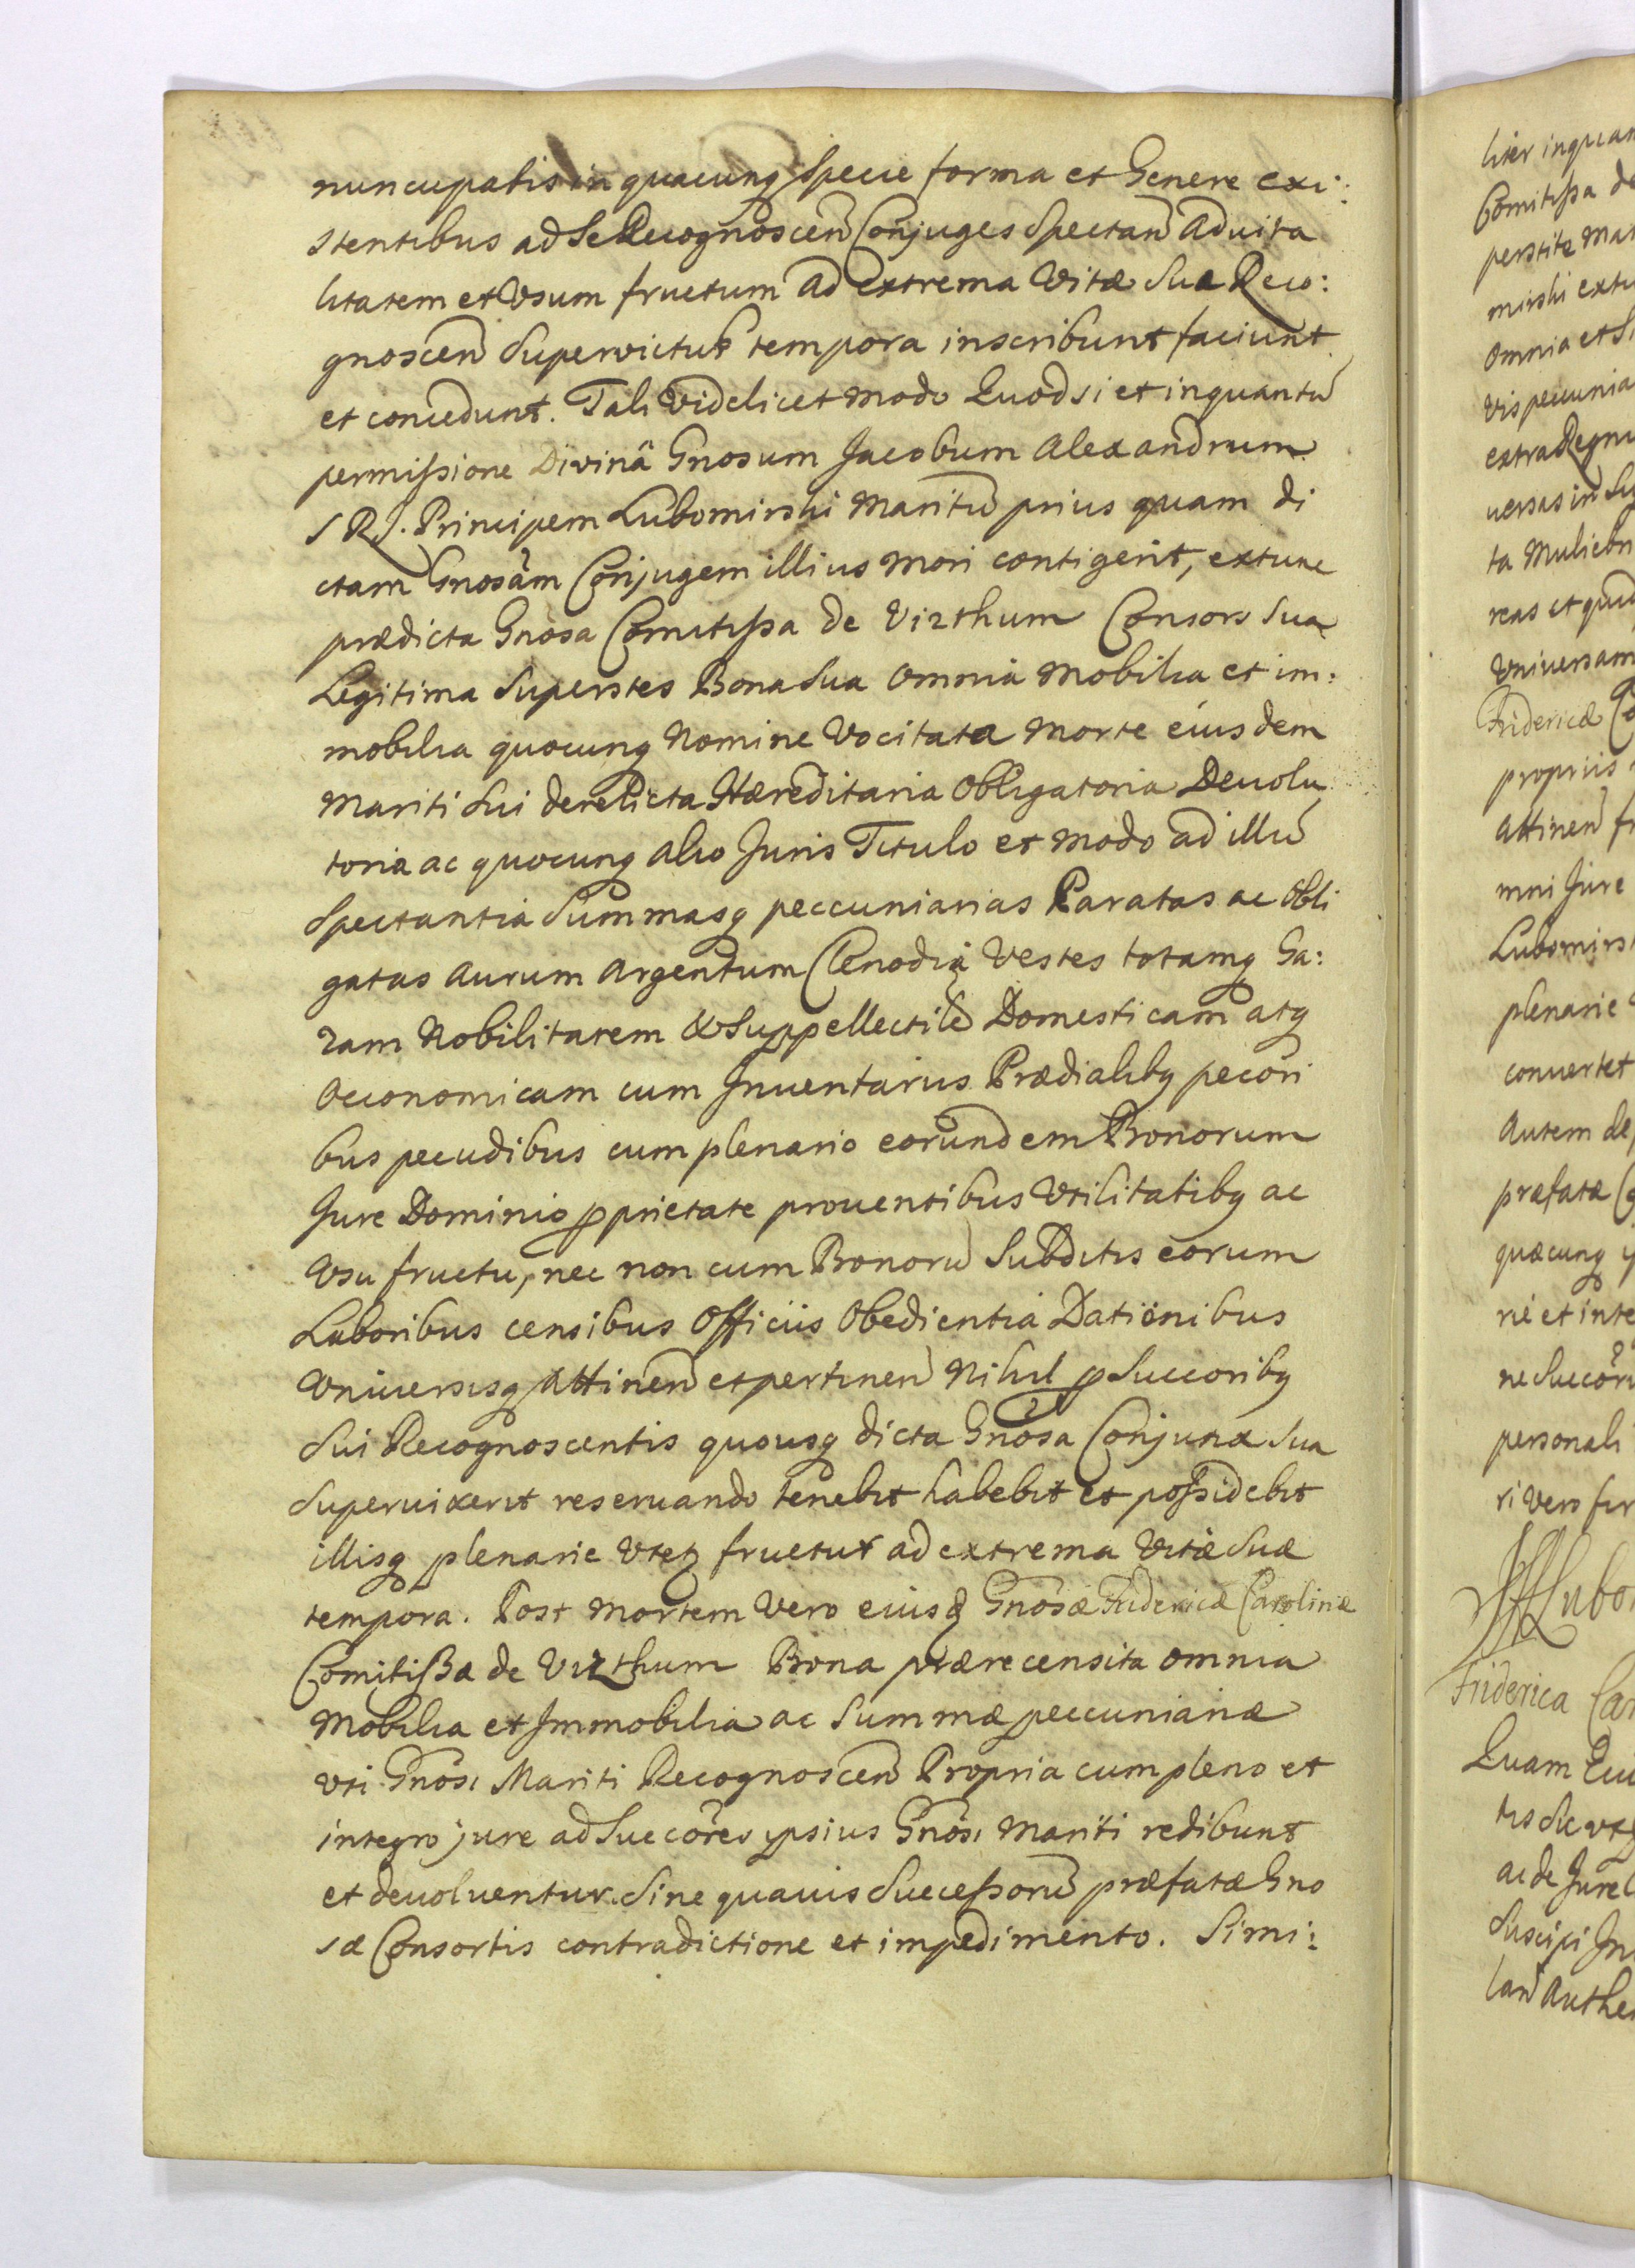 nuncupatis in quacunq specie forma et Genere exi:
stentibus ad Se Recognoscen Conjuges Spectan Aduita
litatem et Vsum fructum ad extrema Vitæ Suæ Reco:
gnoscen Supervictus tempora inscribunt faciunt
et concedunt. Tali Videlicet modo Quod si et inquantū
permißione Divinâ Gnosum Jacobum Alexandrum
S R J. Principem Lubomirski Maritū prius quam di
ctam Gnosam Conjugem illius Mori contigerit, extunc
prædicta Gnosa Comitißa de Vizthum Consors Sua
Legitima Superstes Bona Sua Omnia Mobilia et im:
mobilia quocunq Nomine Vocitata Morte eiusdem
Mariti Sui derelicta Hæreditaria Obligatoria Deuolu
toria ac quocunq alio Juris Titulo et modo ad illū
Spectantia Summasq peccuniarias Paratas ac Obli
gatas Aurum Argentum Clenodia Vestes totamq Ga:
zam Nobilitatem & Suppellectilē Domesticam atq
Oeconomicam cum Jnuentarijs Prædialibq pecori
bus pecudibus cum plenario eorundem Bonorum
Jure Dominio pprietate prouentibus Vtilitatibq ac
Vsu fructu, nec non cum Bonorū Subditis eorum
Laboribus censibus Officiis Obedientia Dationibus
Vniuersisq Attinen et pertinen Nihil p Succoribq
Sui Recognoscentis quousq dicta Gnosa Conjunx Sua
Superuixerit reseruando tenebit habebit et poßidebit
illisq plenarie Vtetq fruetur ad extrema Vitæ Suæ
tempora. Post Mortem Vero eiusd Gnosæ Fridericæ Carolinæ
Comitißæ de Vizthum Bona prærecensita omnia
Mobilia et Jmmobilia ac Summæ peccuniariæ
Vti Gnosi Mariti Recognoscen Propria cum pleno et
integro jure ad Succores ipsius Gnosi Mariti redibunt
et deuoluentur. Sine quauis Succeßorū præfatæ Gno
sæ Consortis contradictione et impedimento. Simi:
liter inquan
Comitißa de
perstite Mar
mirski extu
Omnia et Si
vis peccunia
extra Regnu
uersas in Su
ta Muliebri
reas et quid
Vniuersam
Fridericæ Co
propriis
Attinen fr
mni Jure
Lubomirs
plenarie
conuertet
Autem de
præfatæ Co
quæcunq
ne et inte
ne Succor
personali
ri Vero
Lubo
Friderica Car
Quam
ac de Jure
Suscipi Jn